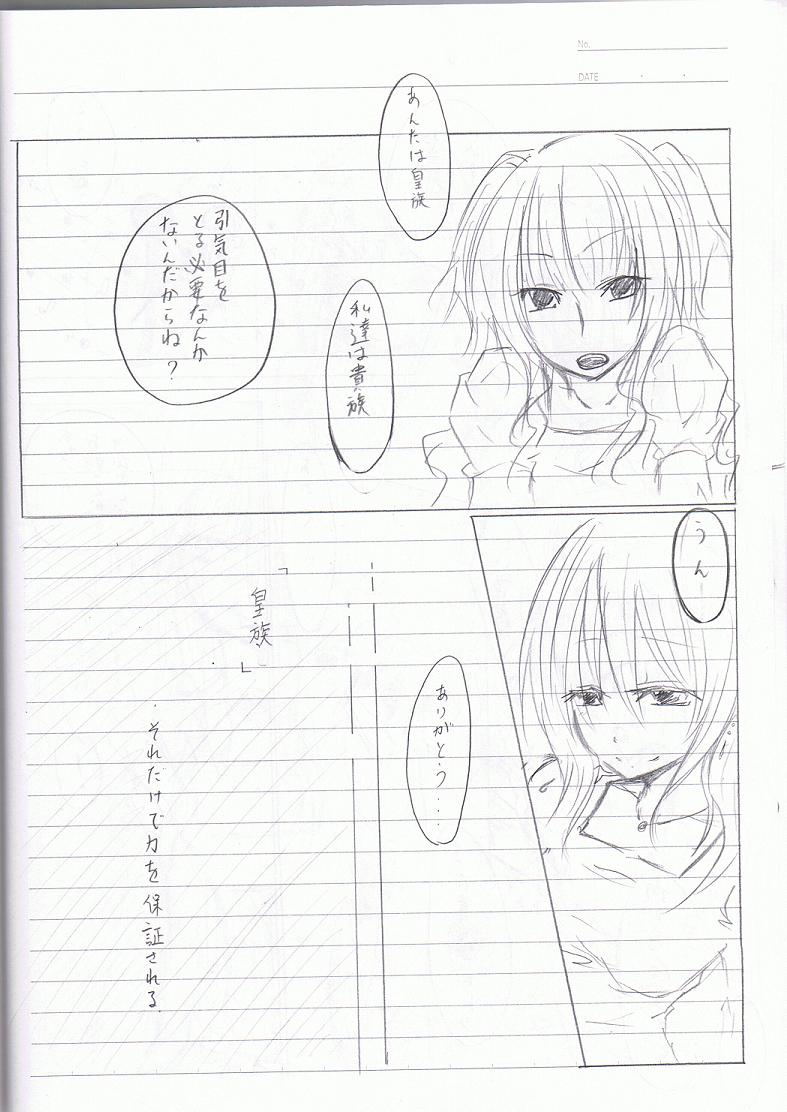 No.
DATE
あんたは皇族
私達は貴族
引気目を
とる必要なんか
ないんだからね？
うん
ありがとう....
「皇族」
それだけで力を保証される